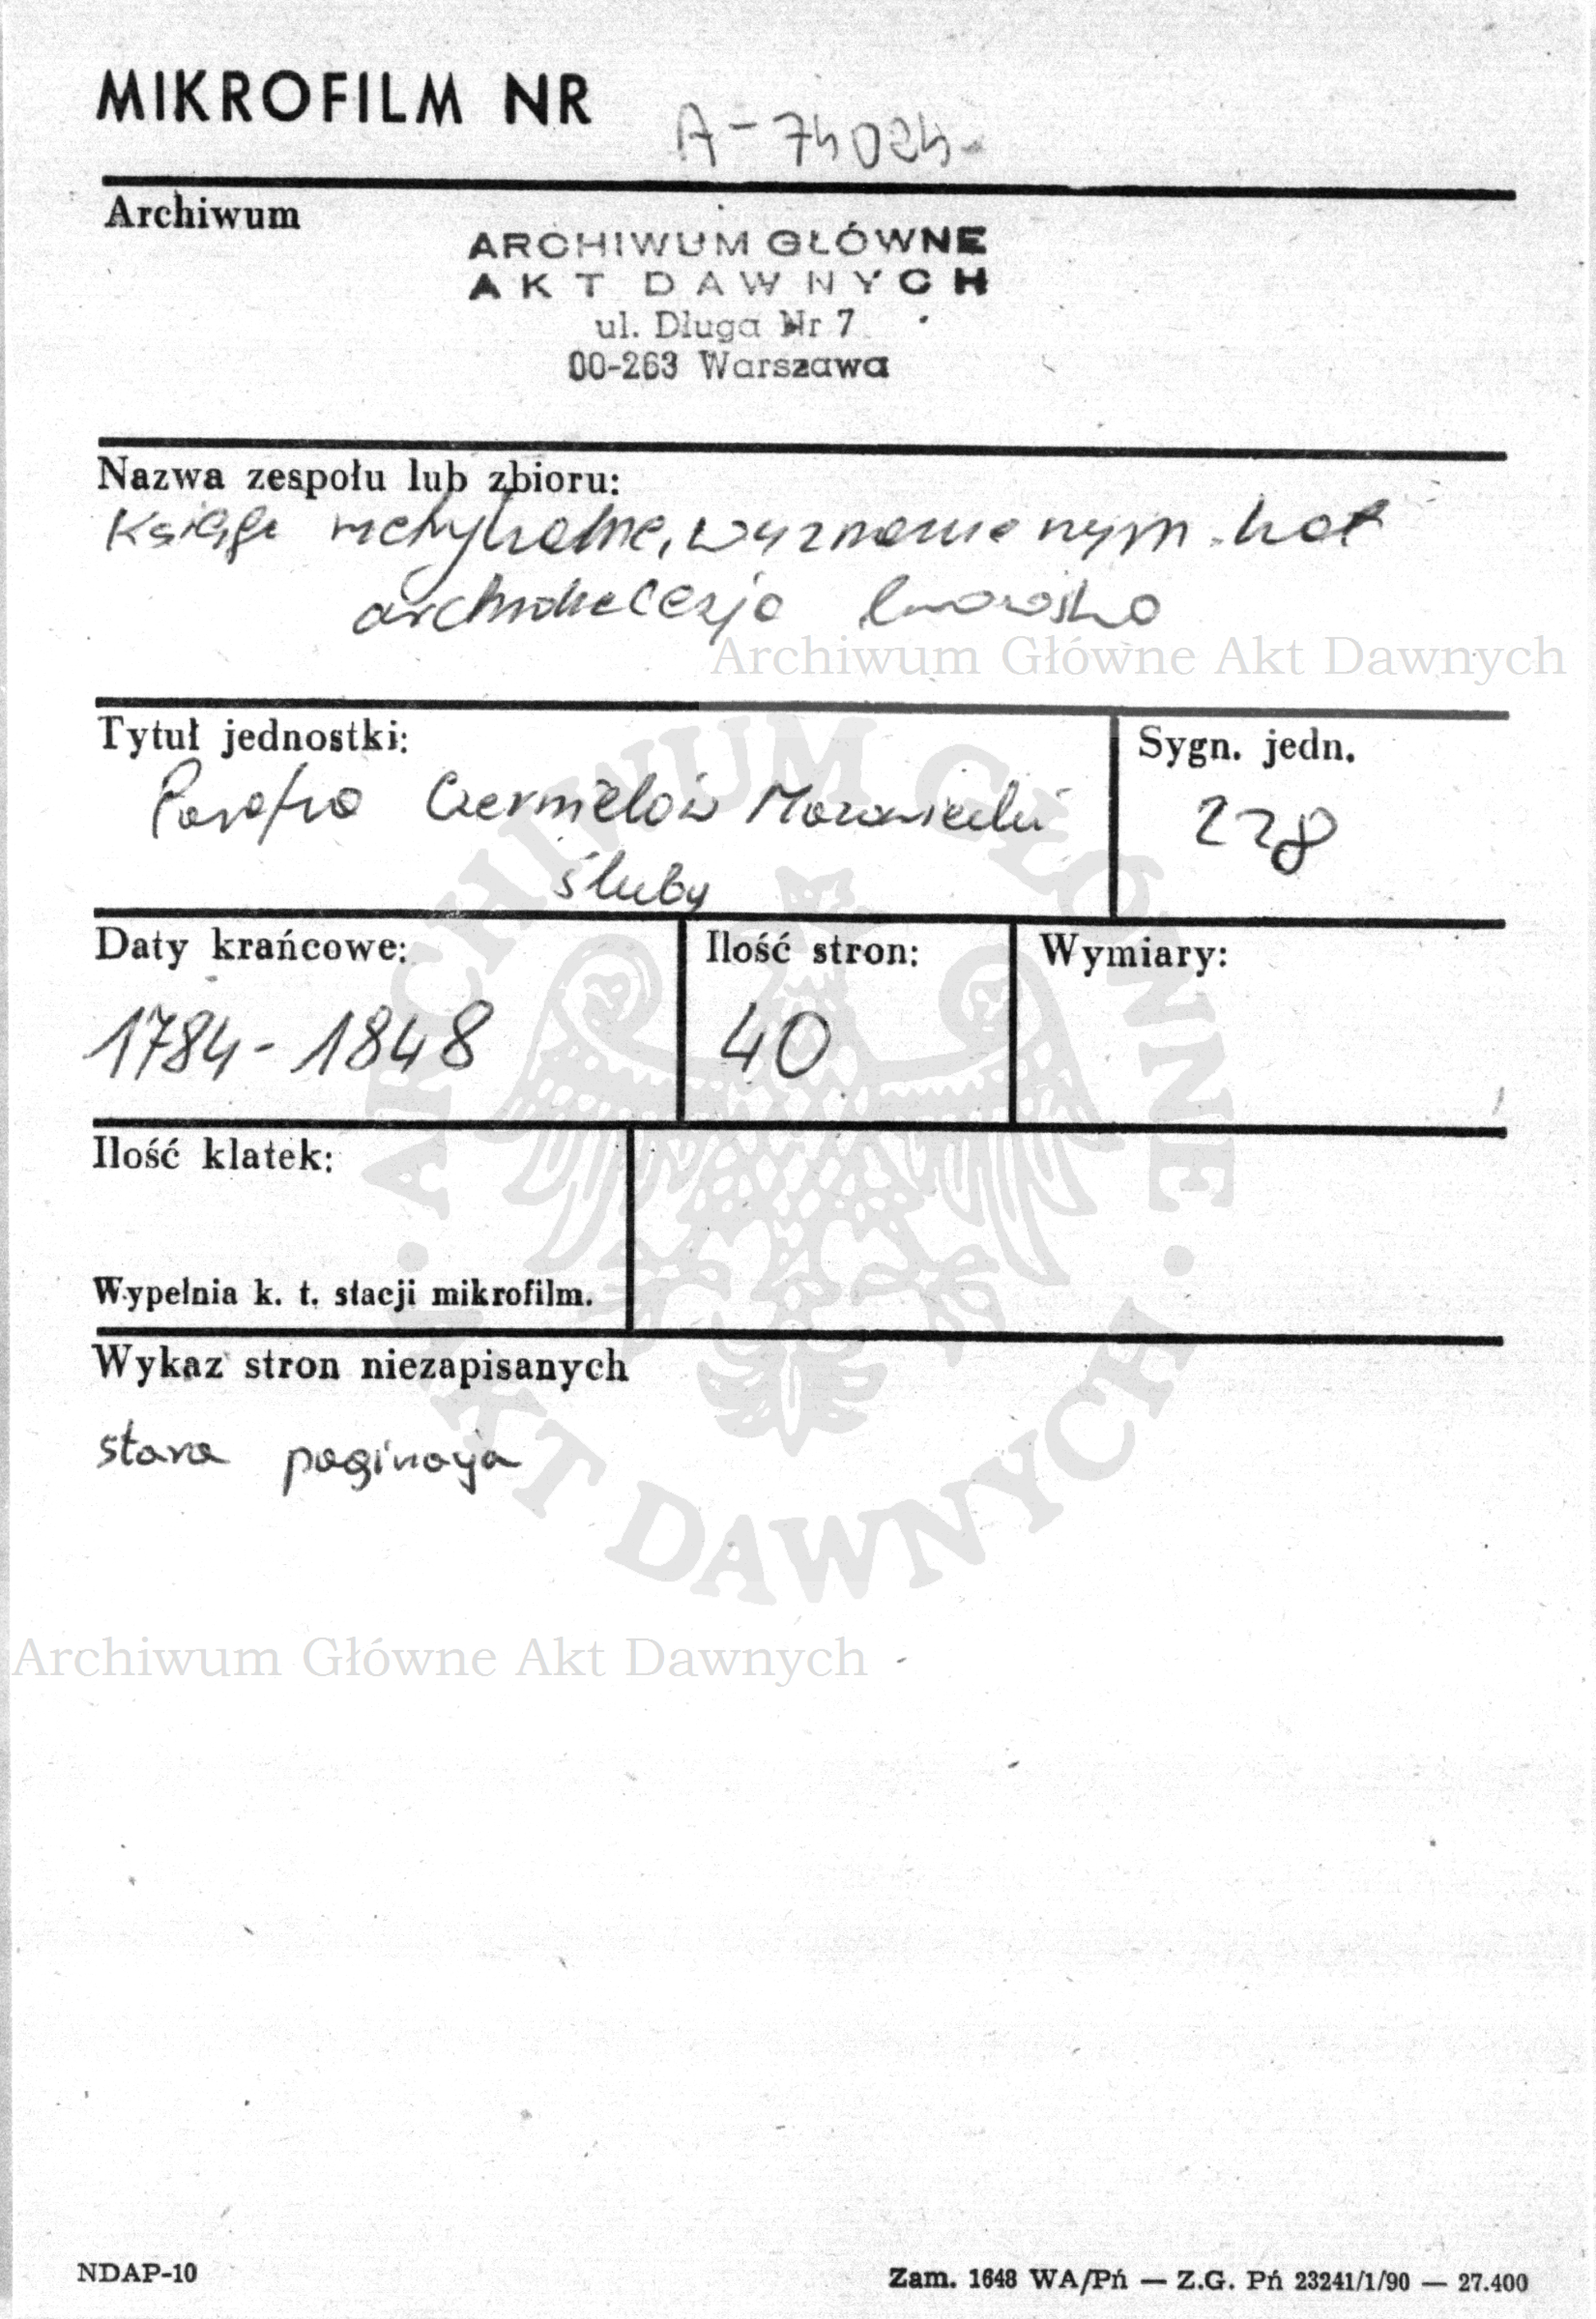 MIKROFILM NR A-74024
Archiwum
ARCHIWUM GŁÓWNE
AKT DAWNYCH
ul. Długa Nr 7
00-263 Warszawa
Nazwa zespołu lub zbioru:
Księgi metrykalne, wyznanie rzym. kat
archidiecezja lwowska
Archiwum Główne Akt Dawnych
Tytuł jednostki:
Sygn. jedn.
Parafia Czernielów Mazowiecki
228
śluby
Daty krańcowe:
Ilość stron:
Wymiary:
1784-1848
40
Ilość klatek:
Wypełnia k. t. stacji mikrofilm.
Wykaz stron niezapisanych
stara paginacja
ARCHIWUM GŁÓWNE
AKT DAWNYCH
Archiwum Główne Akt Dawnych
NDAP-10
Zam. 1648 WA/Pń — Z.G. Pń 23241/1/90 — 27.400